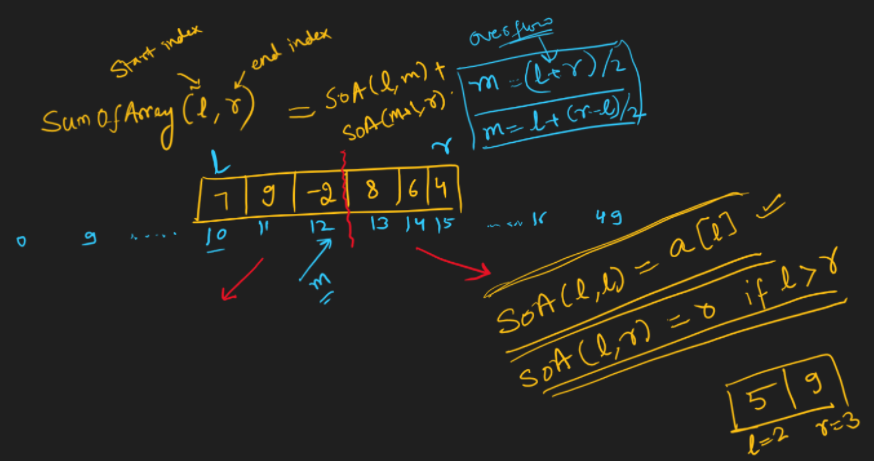 start index
end index
overflow
SumOfArray (l, r) = SoA(l,m) +
SoA(m+1,r).
m = (l+r)/2
m = l + (r-l)/2
L r
7 9 -2 8 6 4
0 9 ...... 10 11 12 13 14 15 ...... 49
m
SoA(l,l) = a[l] ✓
SoA(l,r) = 0 if l>r
5 9
l=2 r=3